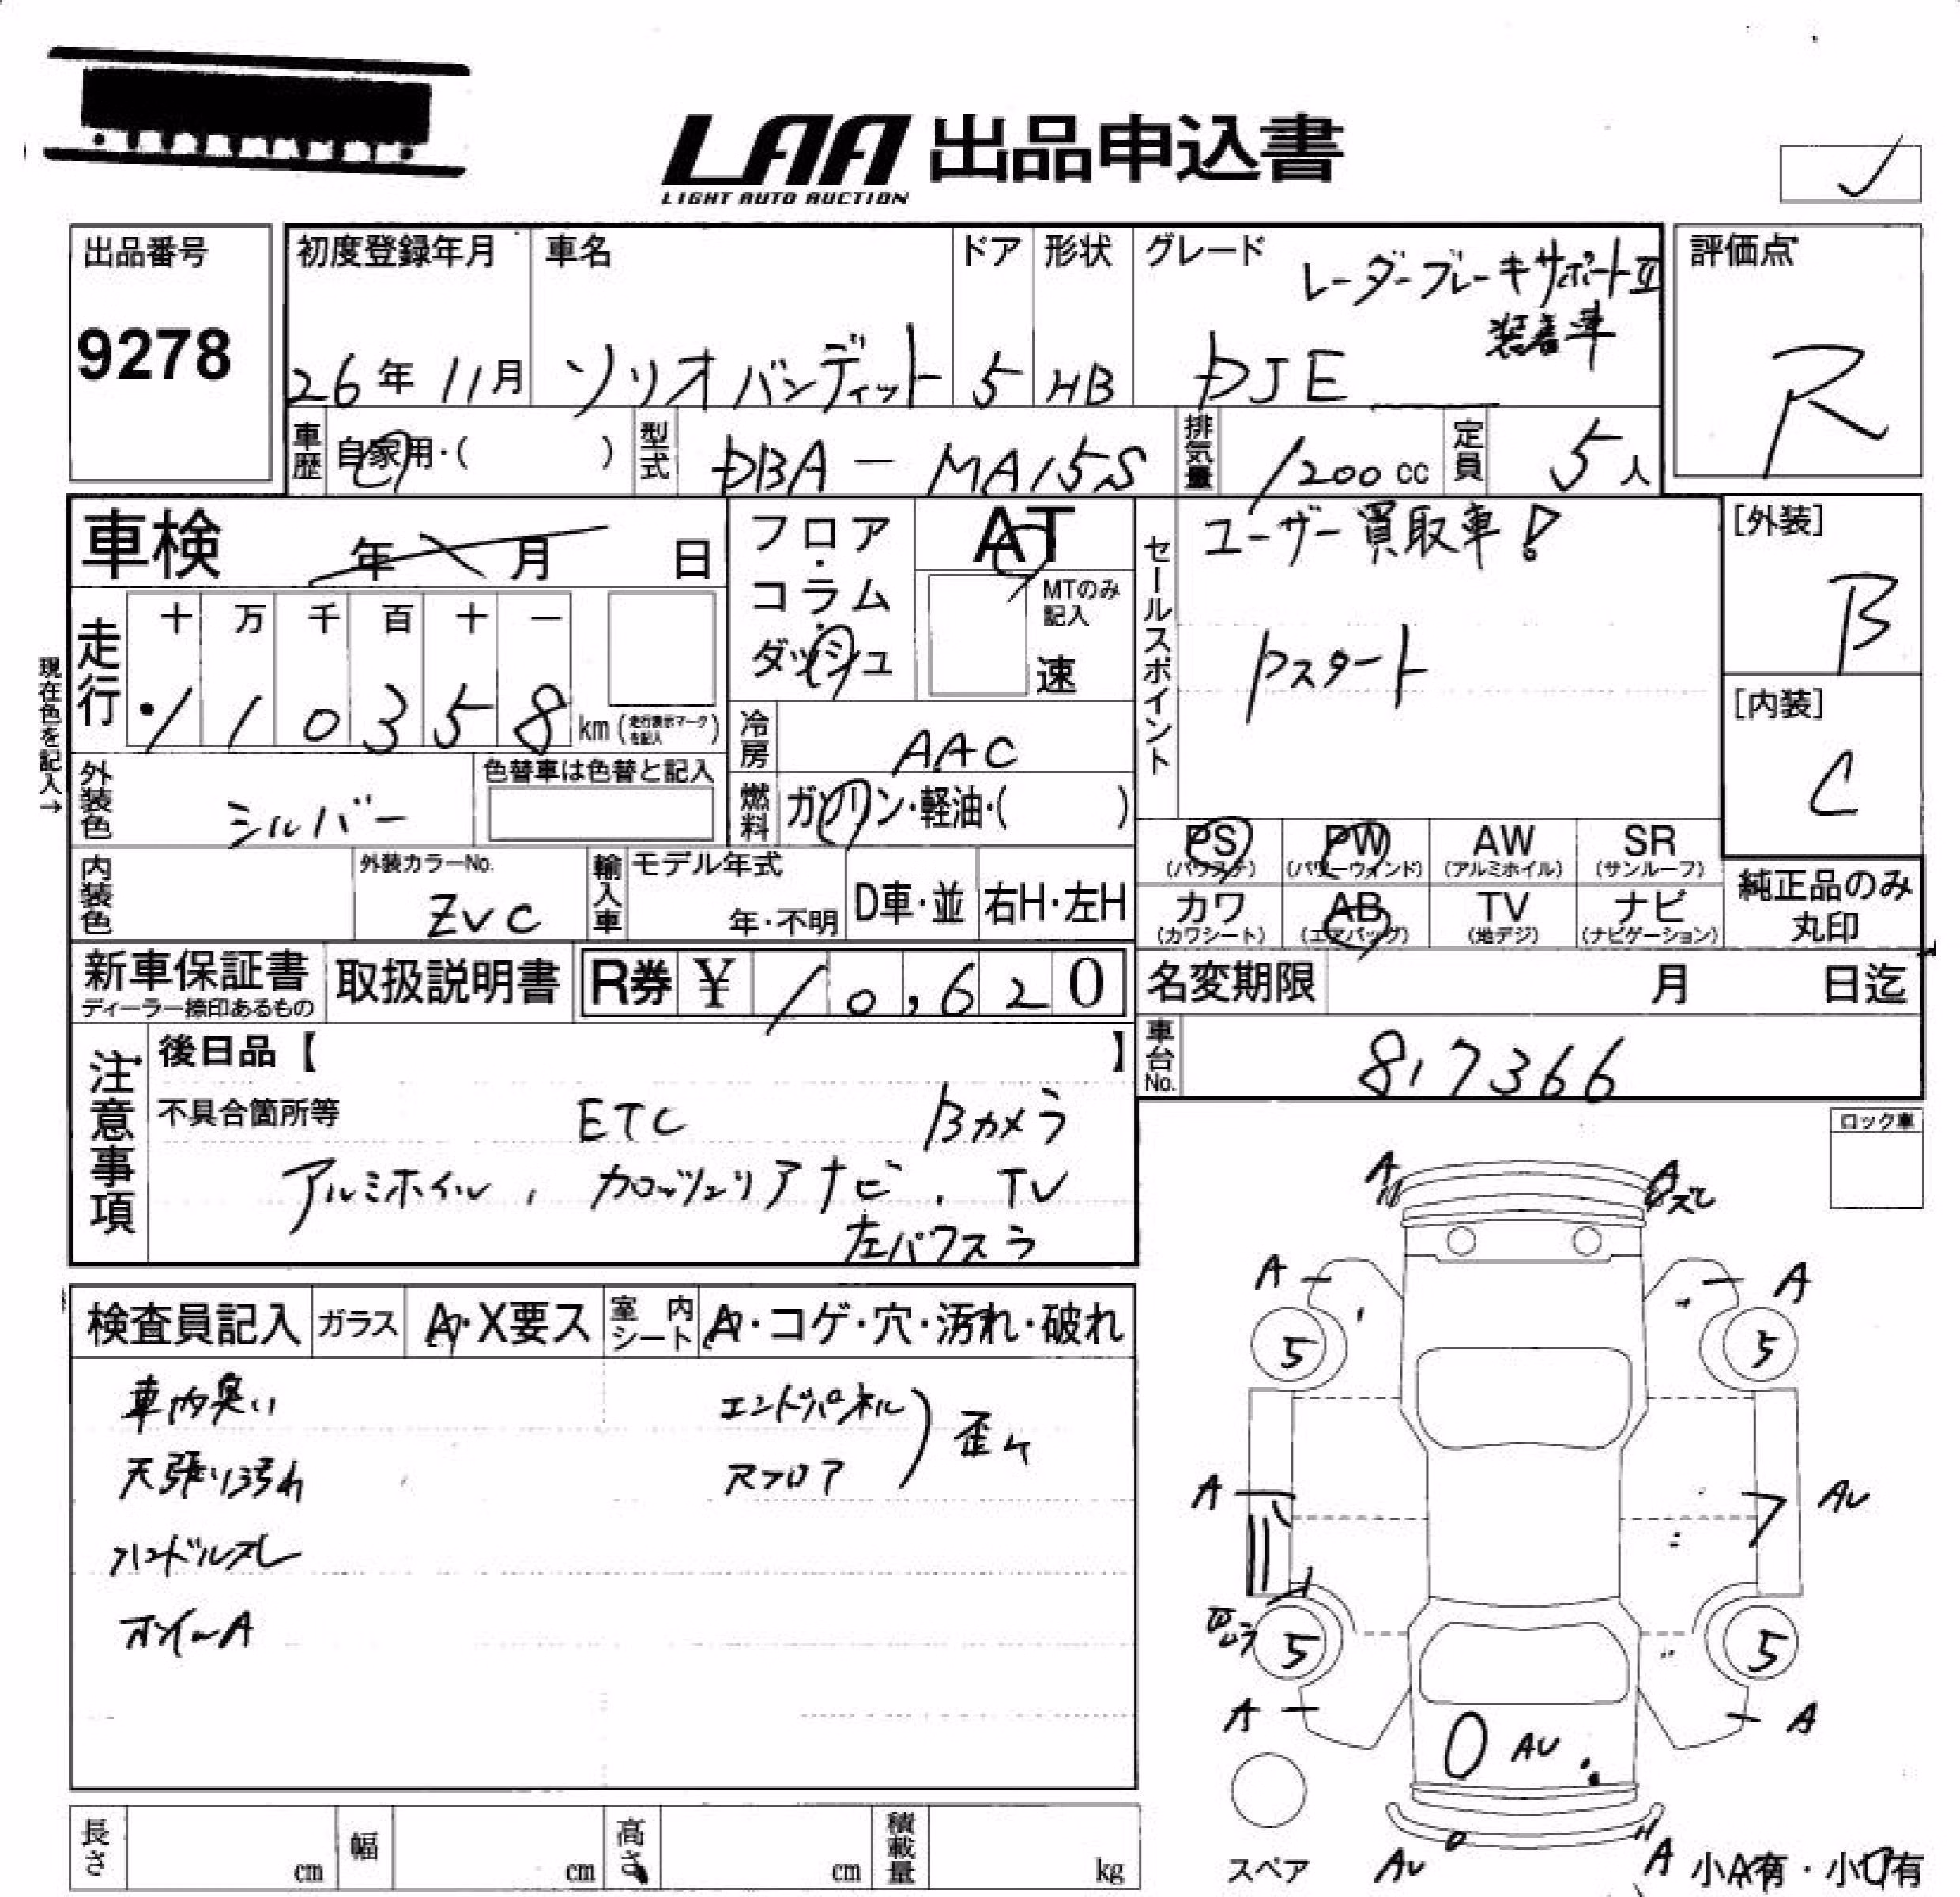 LAA 出品申込書
LIGHT AUTO AUCTION
出品番号
9278
初度登録年月
26年11月
車名
ソリオバンディット
ドア
5
形状
HB
グレード
レーダーブレーキサポートⅡ
装着車
DJE
評価点
R
車歴
自家用・( )
型式
DBA - MA15S
排気量
1200cc
定員
5人
車検
年 月 日
フロア・コラム・ダッシュ
AT
MTのみ記入
速
セールスポイント
ユーザー買取車!
Pスタート
[外装]
B
[内装]
C
現在色を記入→
走行
十 万 千 百 十 一
1 1 0 3 5 8 km (走行表示マークを記入)
冷房
AAC
外装色
シルバー
色替車は色替と記入
燃料
ガソリン・軽油・( )
PS (パワステ)
PW (パワーウィンド)
AW (アルミホイル)
SR (サンルーフ)
カワ (カワシート)
AB (エアバッグ)
TV (地デジ)
ナビ (ナビゲーション)
純正品のみ
丸印
内装色
外装カラーNo.
ZVC
輸入車
モデル年式
年・不明
D車・並
右H・左H
新車保証書
ディーラー捺印あるもの
取扱説明書
R券 ¥ 10,620
名変期限
月 日迄
車台No.
817366
注意事項
後日品【 】
不具合箇所等
ETC Bカメラ
アルミホイル, カロッツェリアナビ, TV
左パワスラ
ロック車
検査員記入
ガラス
A・X要ス
室内シート
A・コゲ・穴・汚れ・破れ
車内臭い
天張り汚れ
ハンドルスレ
ホイールA
エンドパネル
Rフロア
歪ム
A
Aズレ
A
A
5
5
A
AU
5
5
A
A
AU
スペア
AU
A
小A有・小U有
長さ cm
幅 cm
高さ cm
積載量 kg